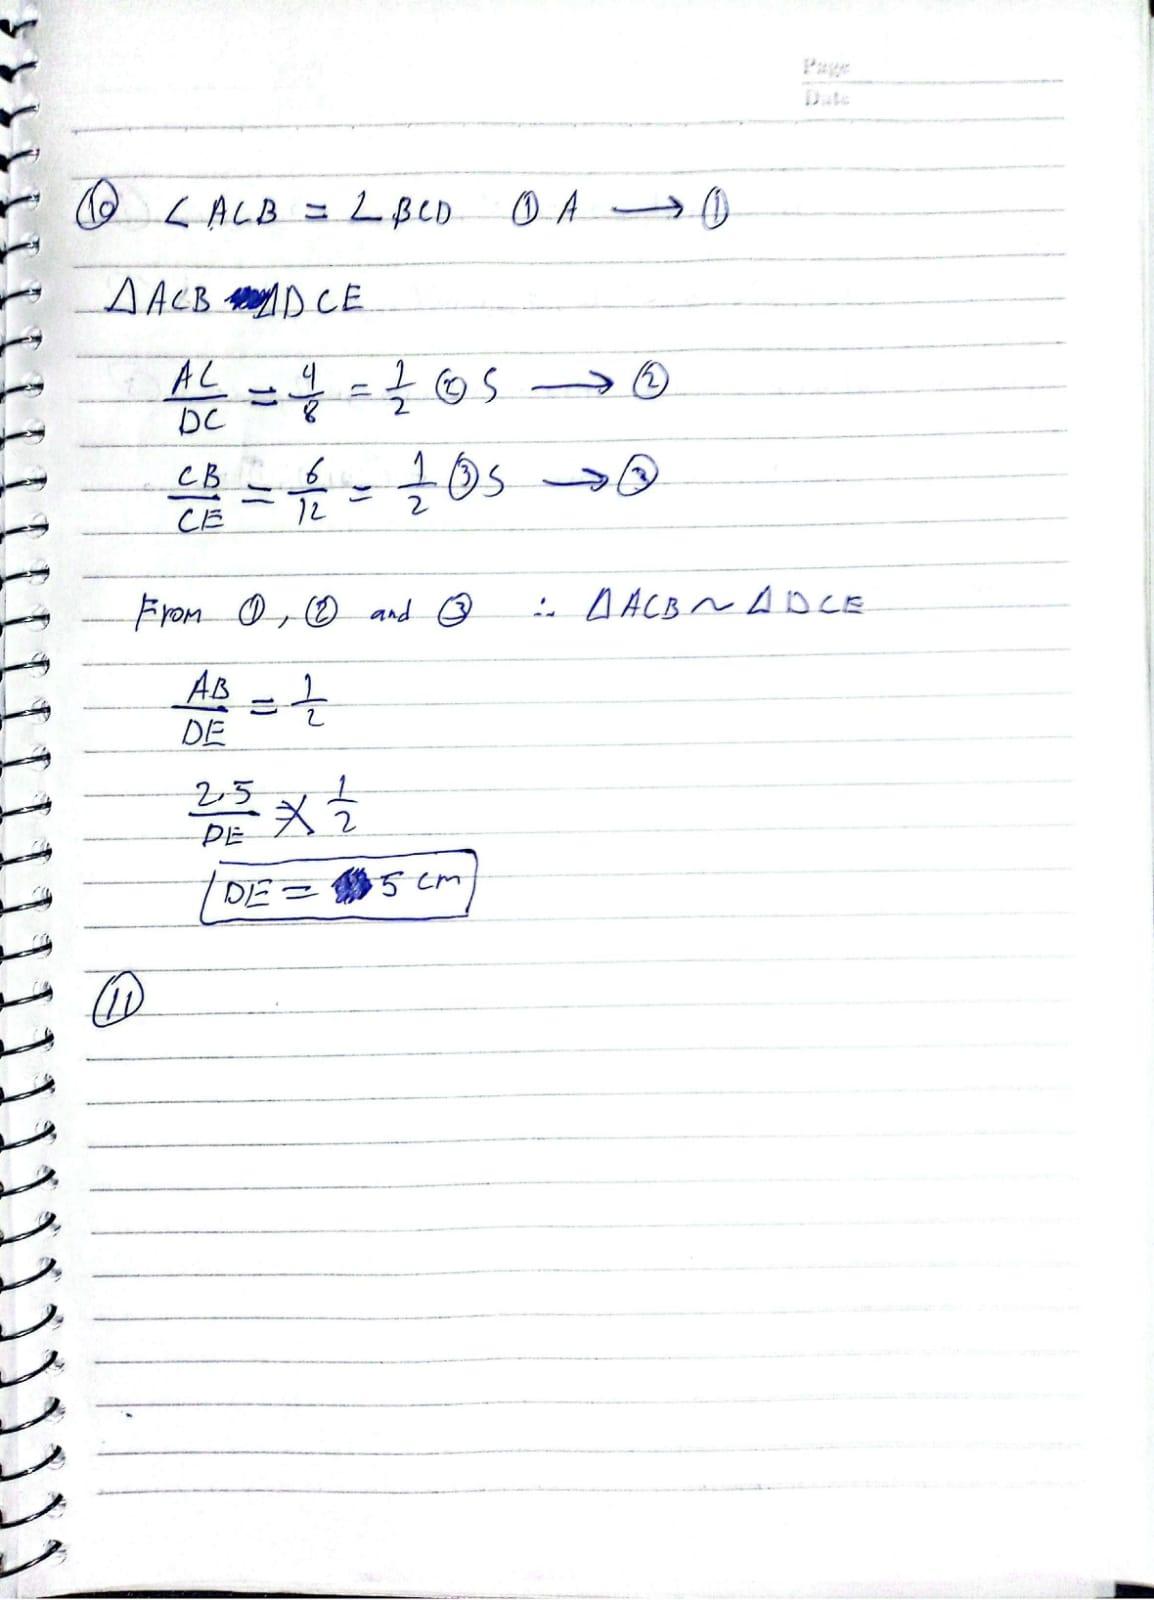 Page
Date
⑩ ∠ACB = ∠BCD ① A ⟶ ①
△ACB △DCE
AC/DC = 4/8 = 1/2 ② S ⟶ ②
CB/CE = 6/12 = 1/2 ③ S ⟶ ③
From ①, ② and ③ ∴ △ACB ~ △DCE
AB/DE = 1/2
2.5/DE = 1/2
DE = 5 cm
⑪